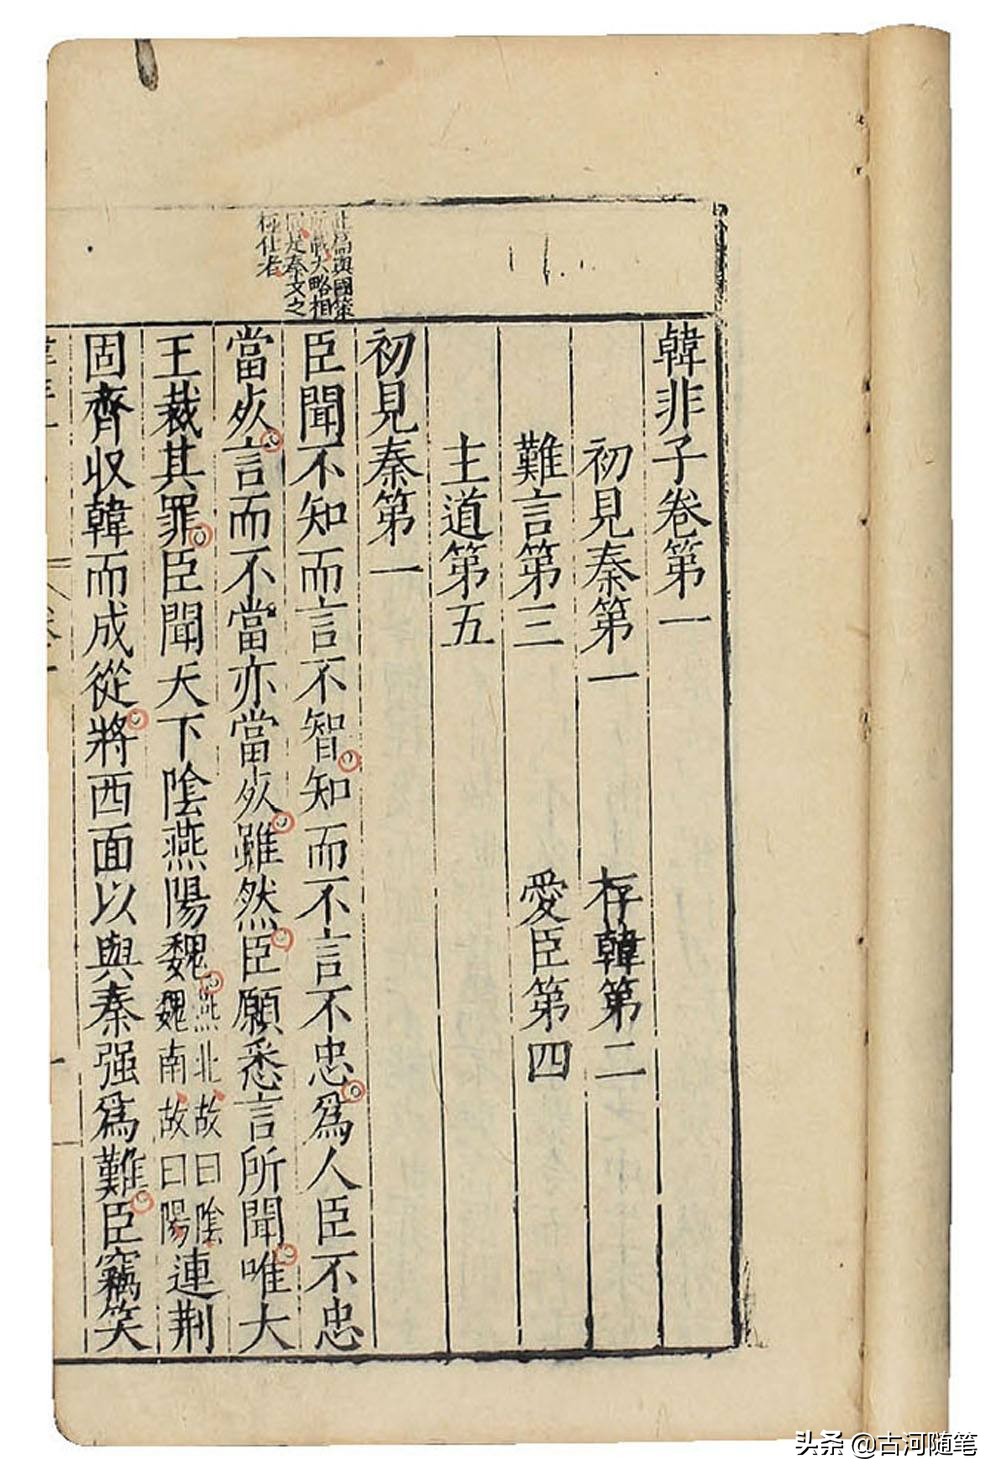 韓非子卷第一
初見秦第一 存韓第二
難言第三 愛臣第四
主道第五
初見秦第一
臣聞不知而言不智知而不言不忠為人臣不忠
當死言而不當亦當死雖然臣願悉言所聞唯大
王裁其罪臣聞天下陰燕陽魏燕北故曰陰魏南故曰陽連荆
固齊收韓而成從將西面以與秦强為難臣竊笑
此篇與國策
所載大略相
同是秦文之
極佳者
头条 @古河随笔